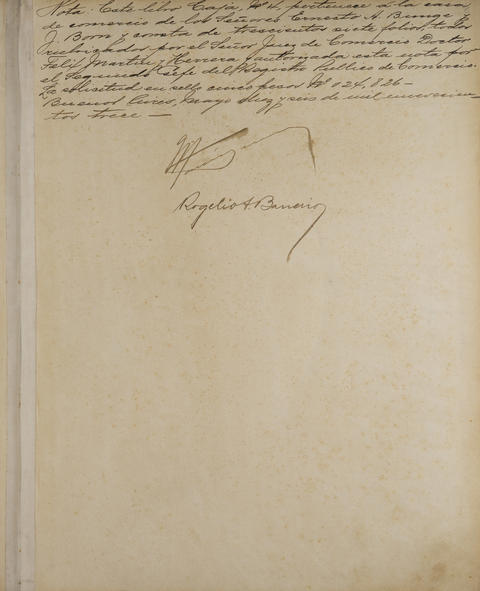 Nota: Este libro Caja, Nº 4, pertenece a la casa
de comercio de los Señores Ernesto A. Bunge y
J. Born y consta de trescientos siete folios, todos
rubricados por el Señor Juez de Comercio Doctor
Felix Martin y Herrera y autorizada esta nota por
el Segundo Jefe del Registro Publico de Comercio.
La solicitud en sello cinco pesos Nº 024,826 -
Buenos Aires, mayo diez y seis de mil novecien-
tos trece —
Rogelio A.